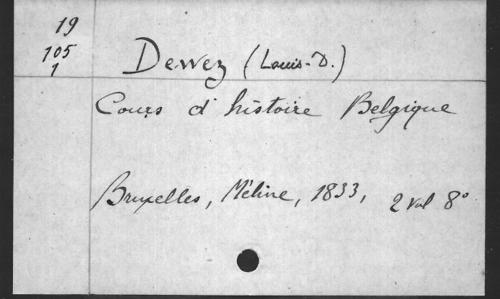 19
105
1
Dewez (Louis-D.)
Cours d'histoire Belgique
Bruxelles, Méline, 1833, 2 vol 8°